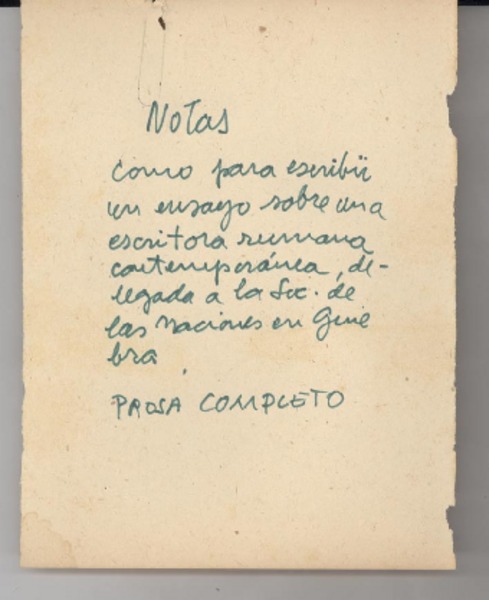 Notas
como para escribir
un ensayo sobre una
escritora rumana
contemporánea, de-
legada a la Soc. de
las Naciones en Gine
bra
PROSA COMPLETO